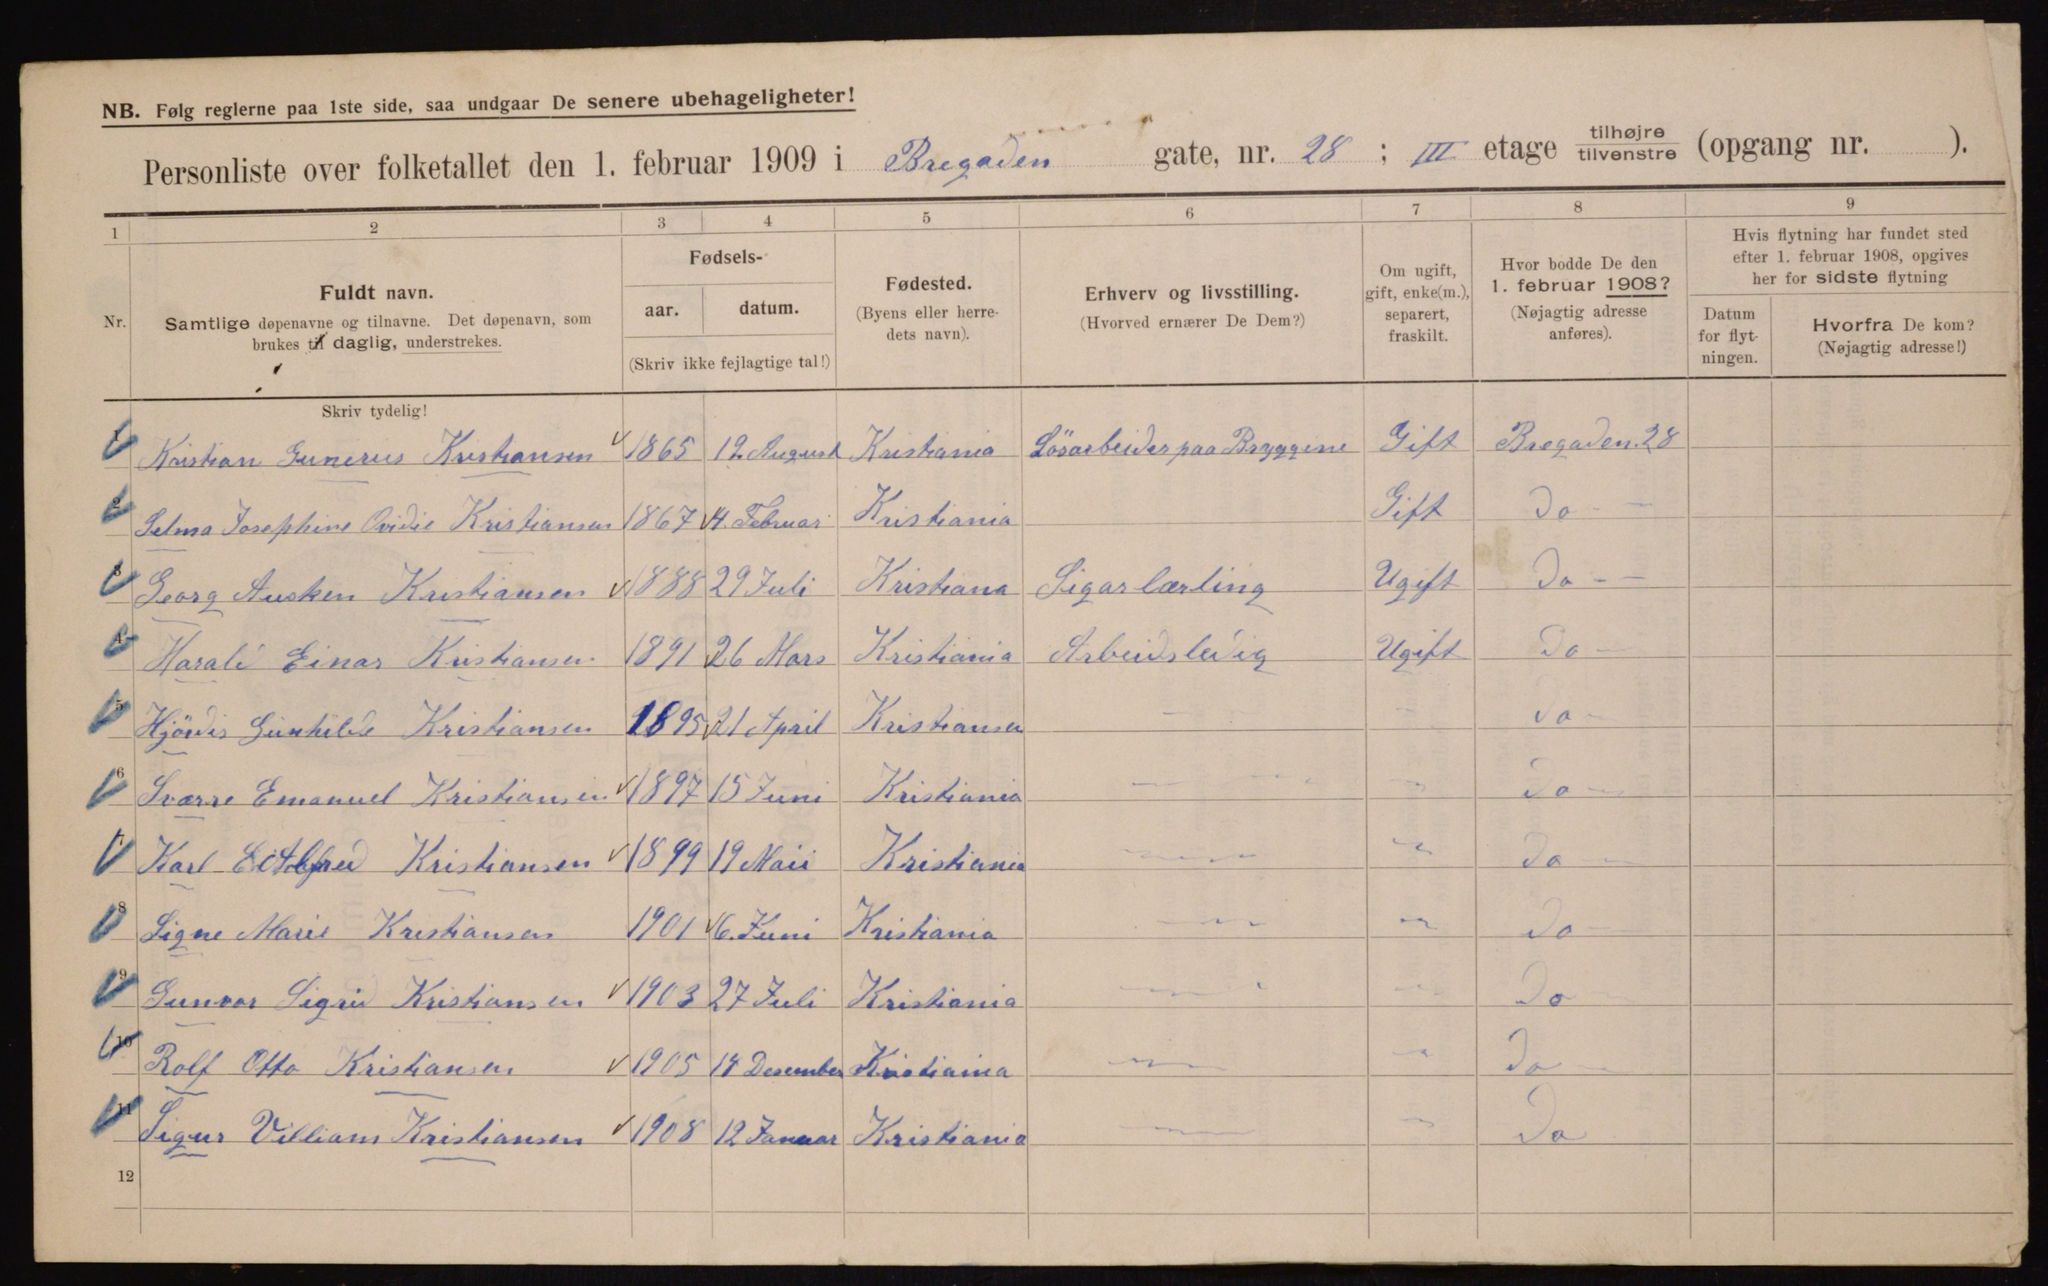 NB. Følg reglerne paa 1ste side, saa undgaar De senere ubehageligheter!
Personliste over folketallet den 1. februar 1909 i Bregaden gate, nr. 28 ; III etage tilhøjre tilvenstre (opgang nr. ).
1 2 3 4 5 6 7 8 9
Nr.
Fuldt navn.
Samtlige døpenavne og tilnavne. Det døpenavn, som
brukes til daglig, understrekes.
Skriv tydelig!
Fødsels-
aar. datum.
(Skriv ikke fejlagtige tal!)
Fødested.
(Byens eller herre-
dets navn).
Erhverv og livsstilling.
(Hvorved ernærer De Dem?)
Om ugift,
gift, enke(m.),
separert,
fraskilt.
Hvor bodde De den
1. februar 1908?
(Nøjagtig adresse
anføres).
Hvis flytning har fundet sted
efter 1. februar 1908, opgives
her for sidste flytning
Datum
for flyt-
ningen.
Hvorfra De kom?
(Nøjagtig adresse!)
1 Kristian Gunerius Kristiansen 1865 12 August Kristiania Lösarbeider paa Bryggene Gift Bregaden 28
2 Selma Josephine Ovidie Kristiansen 1867 4 Februar Kristiania Gift Do —
3 Georg Kristiansen 1888 29 Juli Kristiana Sigarlærling Ugift Do — —
4 Harald Einar Kristiansen 1891 26 Mars Kristiania Arbeidsledig Ugift Do —
5 Hjördis Gunhilde Kristiansen 1895 21 April Kristiansen Do —
6 Sværre Emanuel Kristiansen 1897 15 Juni Kristiania Do —
7 Karl Kristiansen 1899 19 Maii Kristiania Do —
8 Signe Marie Kristiansen 1901 6. Juni Kristiania Do —
9 Gunvor Sigrid Kristiansen 1903 27 Juli Kristiania Do —
10 Rolf Otto Kristiansen 1905 18 Desember Kristiania Do —
11 Sigur Villiam Kristiansen 1908 12 Januar Kristiania Do
12